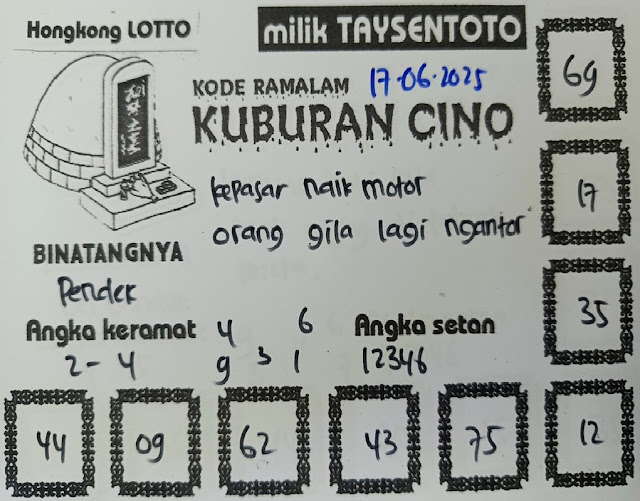 Hongkong LOTTO
milik TAYSENTOTO
KODE RAMALAM 17-06-2025
KUBURAN CINO
kepasar naik motor
orang gila lagi ngantor
BINATANGNYA
Pendek
Angka keramat
2-4
4 6
9 3 1
Angka setan
12346
69
17
35
12
44 09 62 43 75